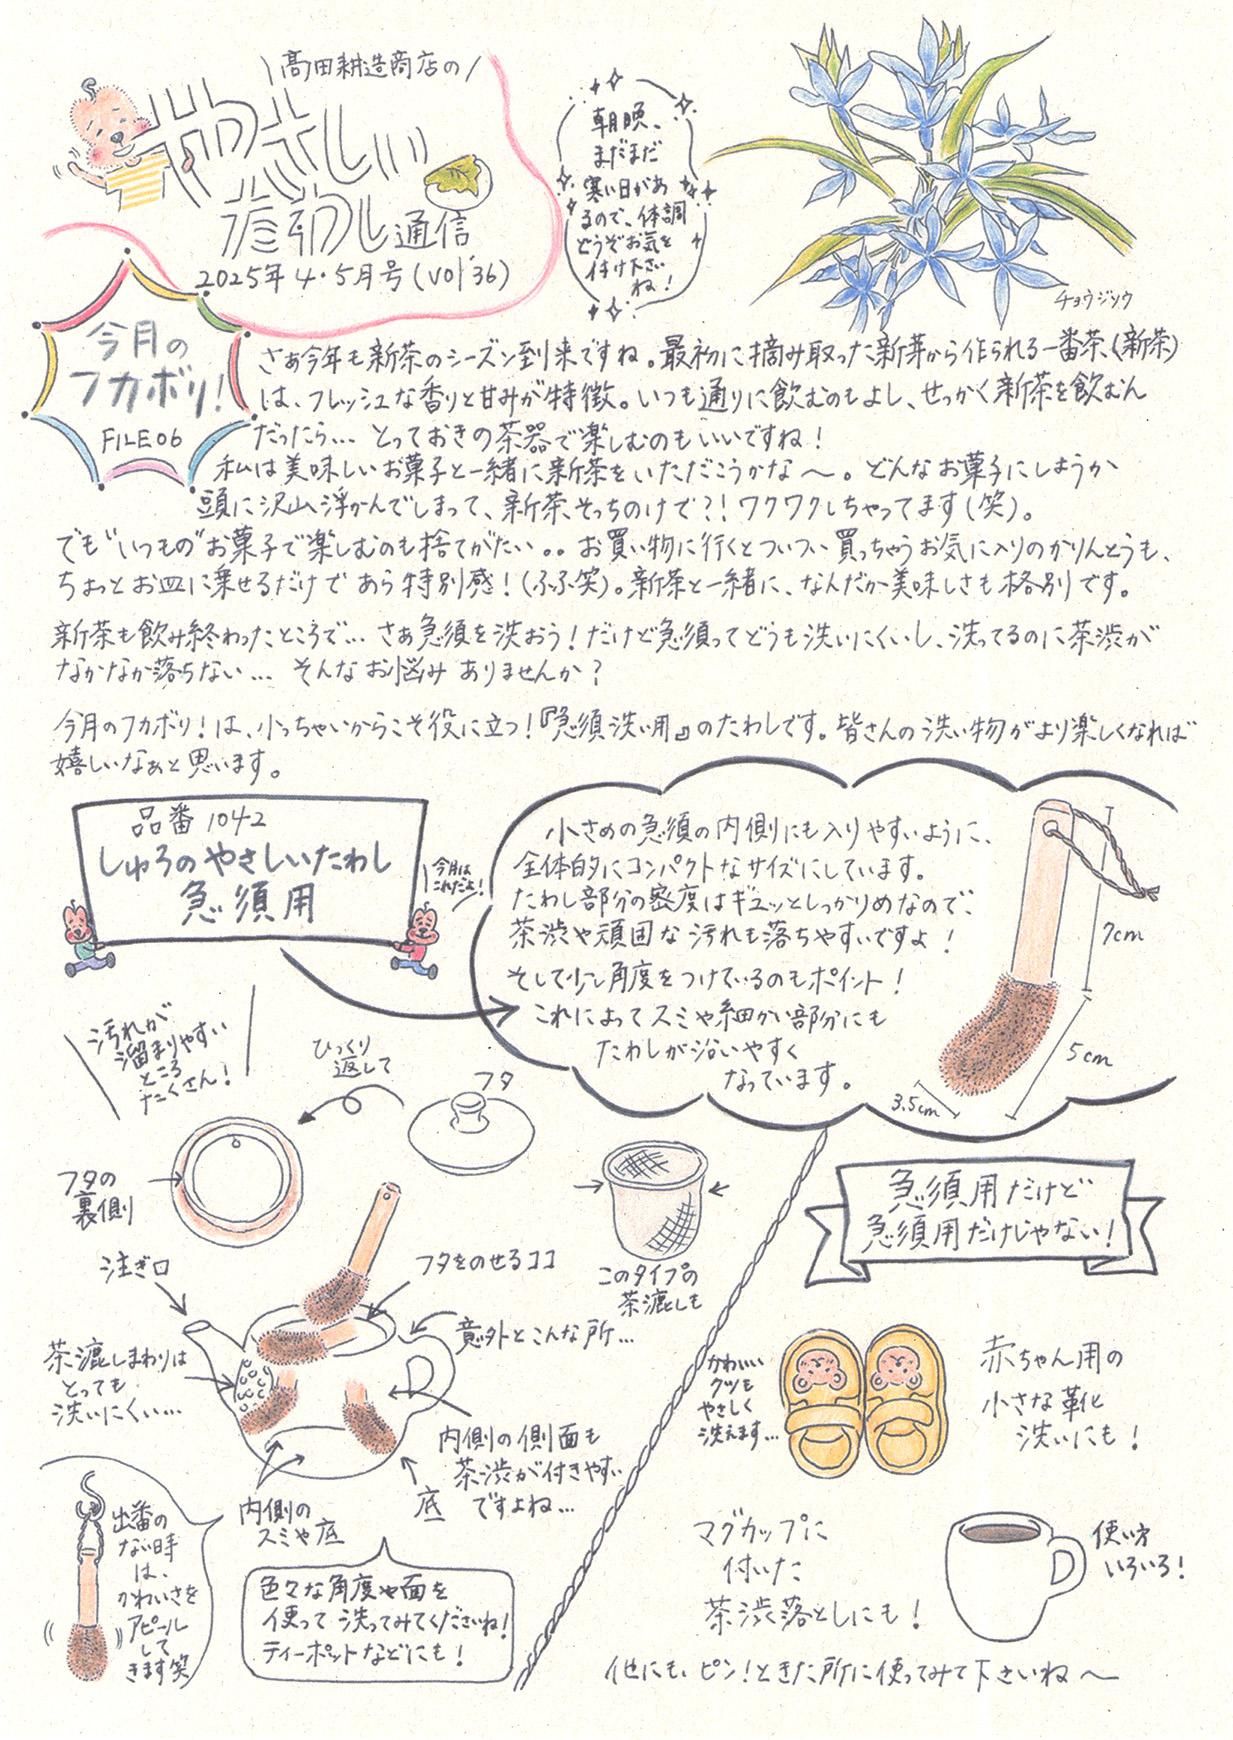 髙田耕造商店の
やさしい
たわし通信
2025年4・5月号(vol'36)
朝晩、
まだまだ
寒い日があ
るので、体調
どうぞお気を
付け下さい
ね!
チョウジソウ
今月の
フカボリ!
FILE06
さあ今年も新茶のシーズン到来ですね。最初に摘み取った新芽から作られる一番茶、(新茶)
は、フレッシュな香りと甘みが特徴。いつも通りに飲むのもよし、せっかく新茶を飲むん
だったら... とっておきの茶器で楽しむのもいいですね!
私は美味しいお菓子と一緒に新茶をいただこうかな〜。どんなお菓子にしようか
頭に沢山浮かんでしまって、新茶そっちのけで?!ワクワクしちゃってます(笑)。
でも"いつもの"お菓子で楽しむのも捨てがたい。。お買い物に行くとついつい買っちゃうお気に入りのかりんとうも、
ちょっとお皿に乗せるだけであら特別感!(ふふ笑)。新茶と一緒に、なんだか美味しさも格別です。
新茶も飲み終わったところで... さあ急須を洗おう!だけど急須ってどうも洗いにくいし、洗ってるのに茶渋が
なかなか落ちない... そんなお悩みありませんか?
今月のフカボリ!は、小っちゃいからこそ役に立つ!『急須洗い用』のたわしです。皆さんの洗い物がより楽しくなれば
嬉しいなぁと思います。
品番1042
しゅろのやさしいたわし
急須用
今月は
これだよ!
小さめの急須の内側にも入りやすいように、
全体的にコンパクトなサイズにしています。
たわし部分の密度はギュッとしっかりめなので、
茶渋や頑固な汚れも落ちやすいですよ!
そして少し角度をつけているのもポイント!
これによってスミや細かい部分にも
たわしが沿いやすく
なっています。
7cm
5cm
3.5cm
汚れが
溜まりやすい
ところ
たくさん!
ひっくり
返して
フタ
フタの
裏側
注ぎ口
フタをのせるココ
このタイプの
茶漉しも
意外とこんな所...
茶漉しまわりは
とっても
洗いにくい...
内側の側面も
茶渋が付きやすい
ですよね...
底
内側の
スミや底
出番の
ない時
は、
かわいさを
アピール
して
きます笑
色々な角度や面を
使って洗ってみてくださいね!
ティーポットなどにも!
急須用だけど
急須用だけじゃない!
かわいい
クツも
やさしく
洗えます...
赤ちゃん用の
小さな靴
洗いにも!
マグカップに
付いた
茶渋落としにも!
使い方
いろいろ!
他にも、ピン!ときた所に使ってみて下さいね〜